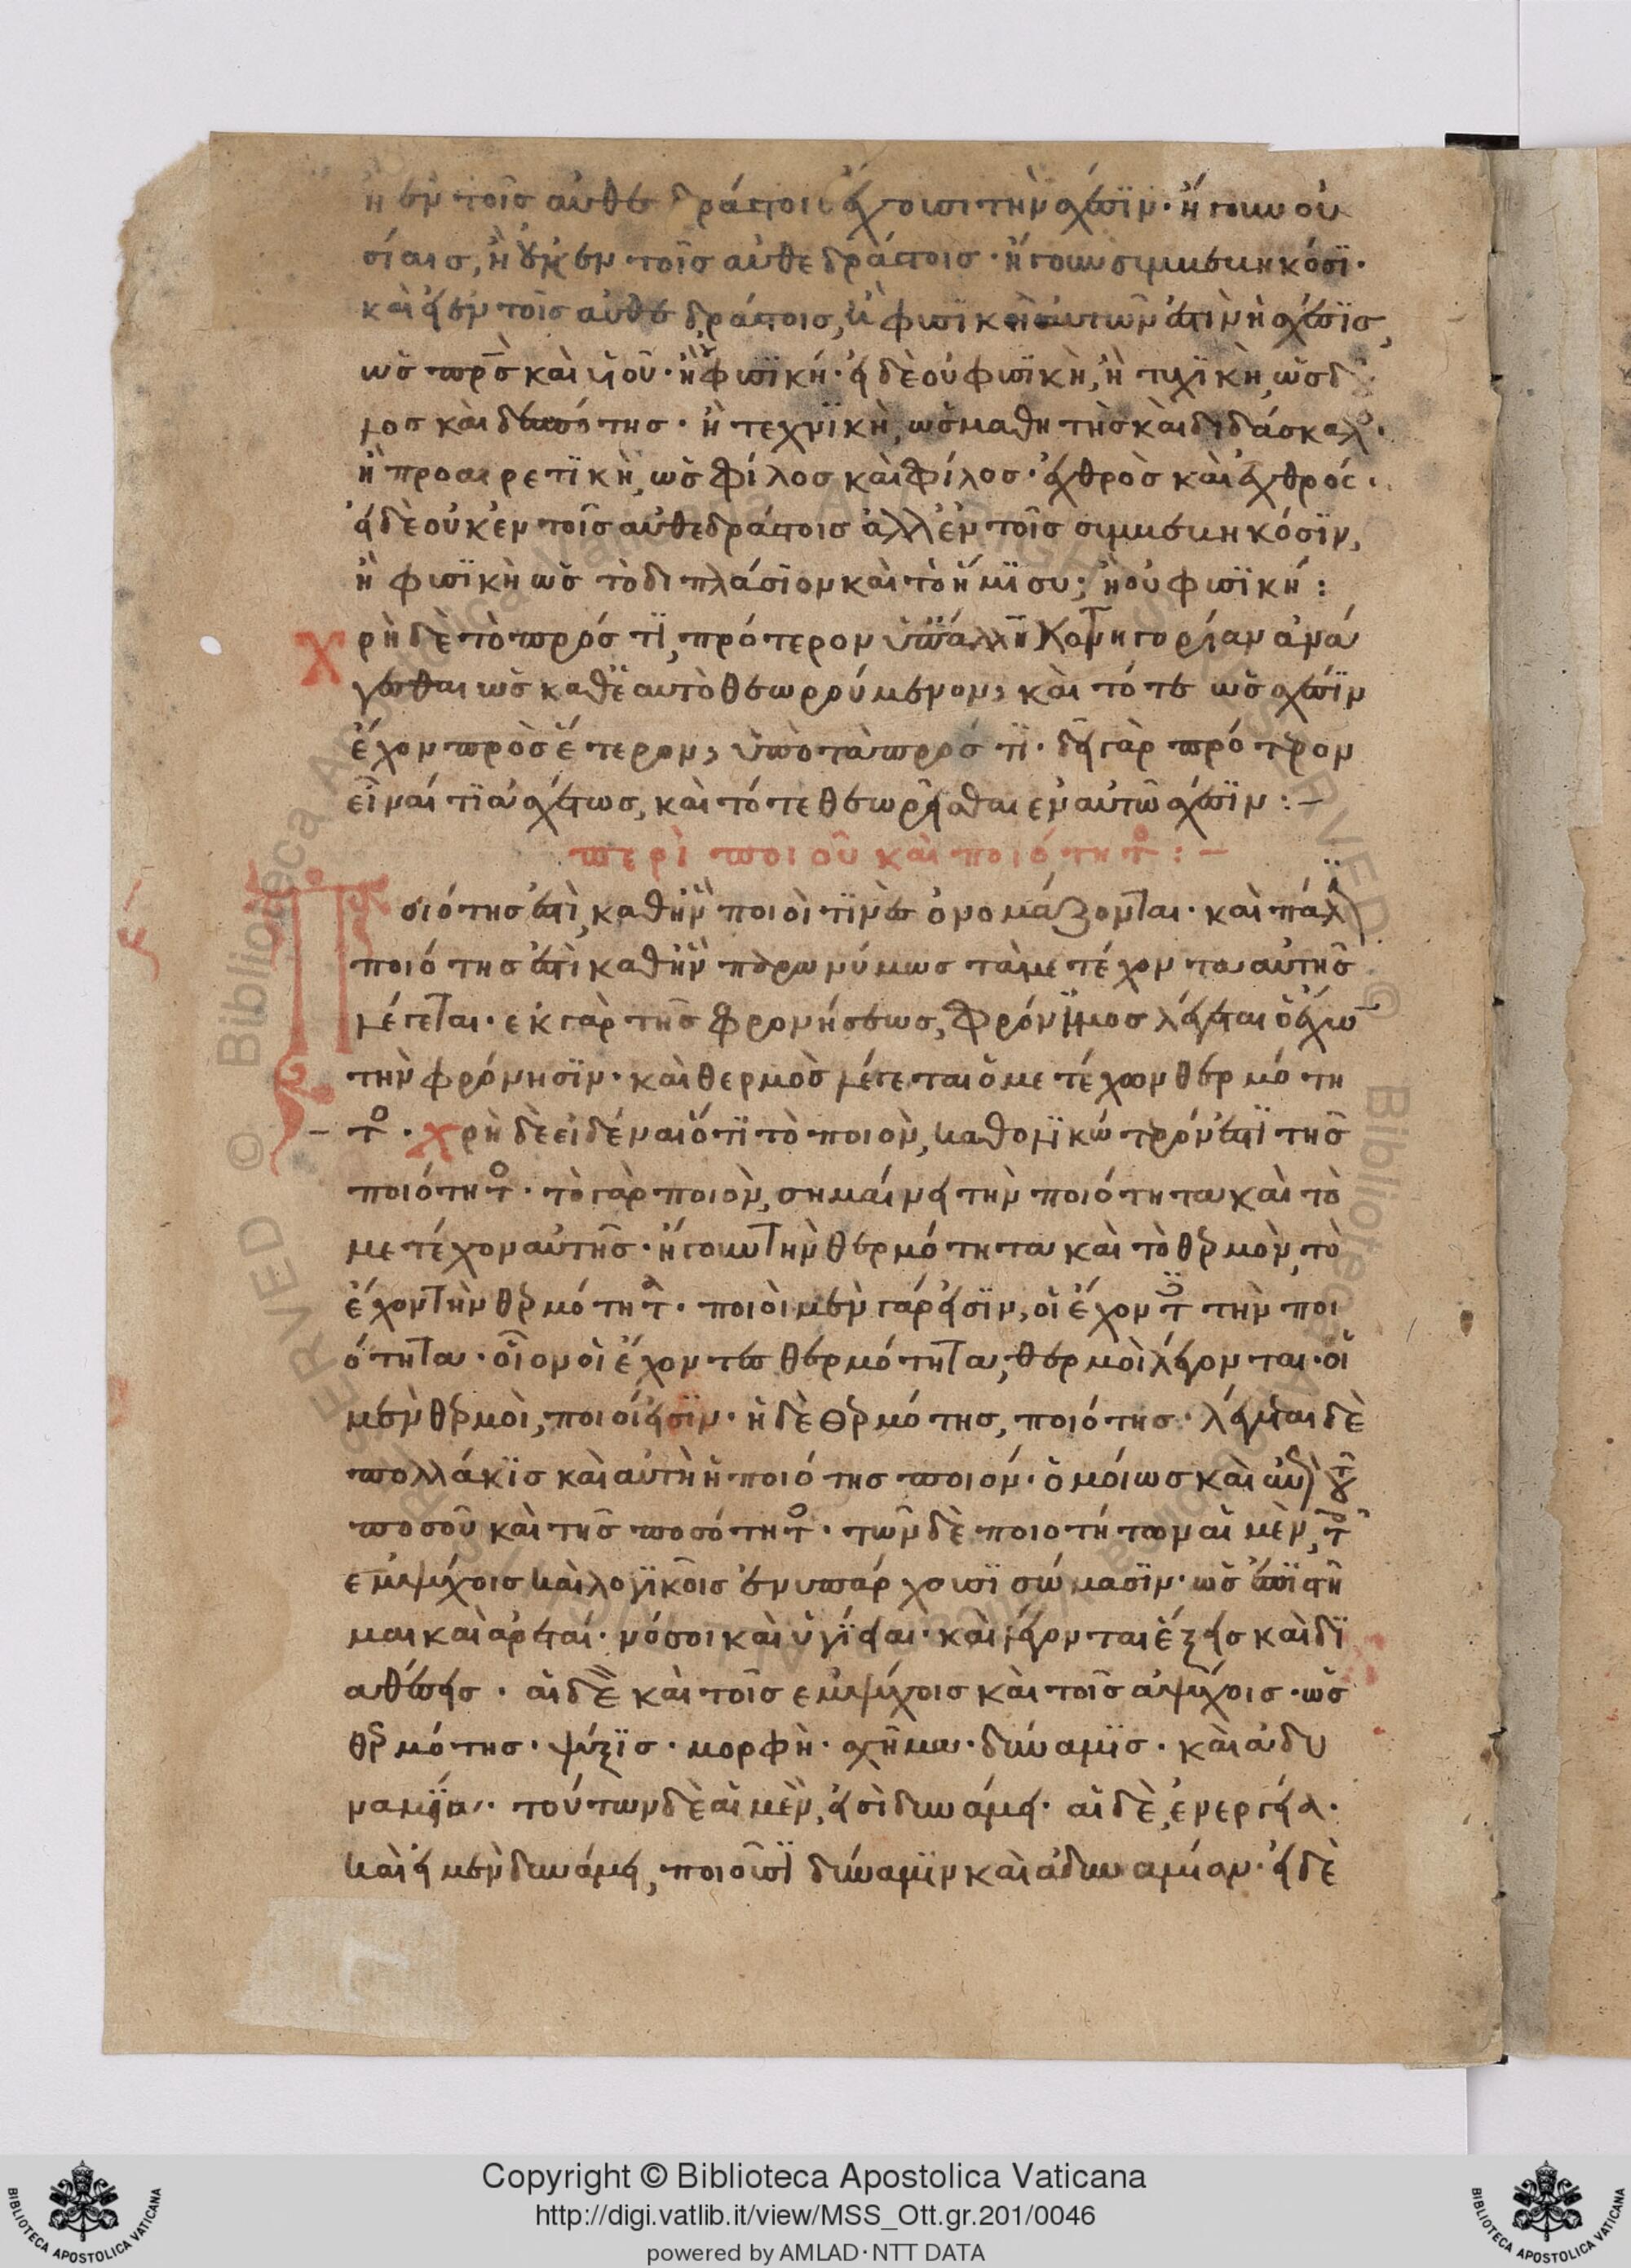 ἢ ἐν τοῖς αὐθεδράστοις ἔχουσι τὴν σχέσιν· ἤγουν οὐ
σίαις, ἢ οὐκ ἐν τοῖς αὐθεδράστοις· ἤγουν συμβεβηκόσι·
καὶ εἰ ἐν τοῖς αὐθεδράστοις, ἢ φυσικὴ αὐτῶν ἐστὶν ἡ σχέσις,
ὡς πρς καὶ υἱοῦ· ἢ οὐ φυσική· εἰ δὲ οὐ φυσικὴ, ἢ τυχικὴ, ὡς δοῦ
λος καὶ δεσπότης· ἢ τεχνικὴ, ὡς μαθητὴς καὶ διδάσκαλ·
ἢ προαιρετικὴ, ὡς φίλος καὶ φίλος· ἐχθρὸς καὶ ἐχθρός·
εἰ δὲ οὐκ ἐν τοῖς αὐθεδράστοις ἀλλ' ἐν τοῖς συμβεβηκόσιν,
ἢ φυσικὴ ὡς τὸ διπλάσιον καὶ τὸ ἥμισυ· ἢ οὐ φυσική:
χρὴ δὲ τὸ πρός τι, πρότερον ὑπ' ἄλλην κατηγορίαν ἀνά
γεσθαι ὡς καθ' ἑαυτὸ θεωρούμενον, καὶ τότε ὡς σχέσιν
ἔχον πρὸς ἕτερον, ὑπὸ τὰ πρός τι· δεῖ γὰρ πρότερον
εἶναί τι ἀσχέτως, καὶ τότε θεωρεῖσθαι ἐν αὐτῶ σχέσιν:–
περὶ ποιοῦ καὶ ποιότητο:–
Ποιότης ἐστὶ, καθ' ἣν ποιοί τινες ὀνομάζονται· καὶ πάλιν
ποιότης ἐστὶ καθ' ἣν παρωνύμως τὰ μετέχοντα αὐτῆς
λέγεται· ἐκ γὰρ τῆς φρονήσεως, φρόνιμος λέγεται ὁ ἔχων
τὴν φρόνησιν· καὶ θερμὸς λέγεται ὁ μετέχων θερμότη
το· χρὴ δὲ εἰδέναι ὅτι τὸ ποιὸν, καθολικώτερόν ἐστι τῆς
ποιότητο· τὸ γὰρ ποιὸν, σημαίνει τὴν ποιότητα καὶ τὸ
μετέχον αὐτῆς· ἤγουν τὴν θερμότητα καὶ τὸ θερμὸν, τὸ
ἔχον τὴν θερμότητα· ποιοὶ μὲν γάρ εἰσιν, οἱ ἔχοντες τὴν ποι
ότητα· οἷον οἱ ἔχοντες θερμότητα, θερμοὶ λέγονται· οἱ
μὲν θερμοὶ, ποιοί εἰσιν· ἡ δὲ θερμότης, ποιότης· λέγεται δὲ
πολλάκις καὶ αὐτὴ ἡ ποιότης ποιόν· ὁμοίως καὶ ἐπὶ τοῦ
ποσοῦ καὶ τῆς ποσότητο· τῶν δὲ ποιοτήτων αἱ μὲν, τοῖς
ἐμψύχοις καὶ λογικοῖς ἐνυπάρχουσι σώμασιν· ὡς ἐπιστῆ
μαι καὶ ἀρεταί· νόσοι καὶ ὑγίειαι· καὶ λέγονται ἕξεις καὶ δι
αθέσεις· αἱ δὲ καὶ τοῖς ἐμψύχοις καὶ τοῖς ἀψύχοις· ὡς
θερμότης· ψύξις· μορφὴ· σχῆμα· δύναμις· καὶ ἀδυ
ναμία· τούτων δὲ αἱ μὲν, εἰσὶ δυνάμει· αἱ δὲ, ἐνεργεία·
καὶ εἰ μὲν δυνάμει, ποιοῦσι δύναμιν καὶ ἀδυναμίαν· εἰ δὲ
Copyright © Biblioteca Apostolica Vaticana
http://digi.vatlib.it/view/MSS_Ott.gr.201/0046
powered by AMLAD·NTT DATA
BIBLIOTECA APOSTOLICA VATICANA
BIBLIOTECA APOSTOLICA VATICANA